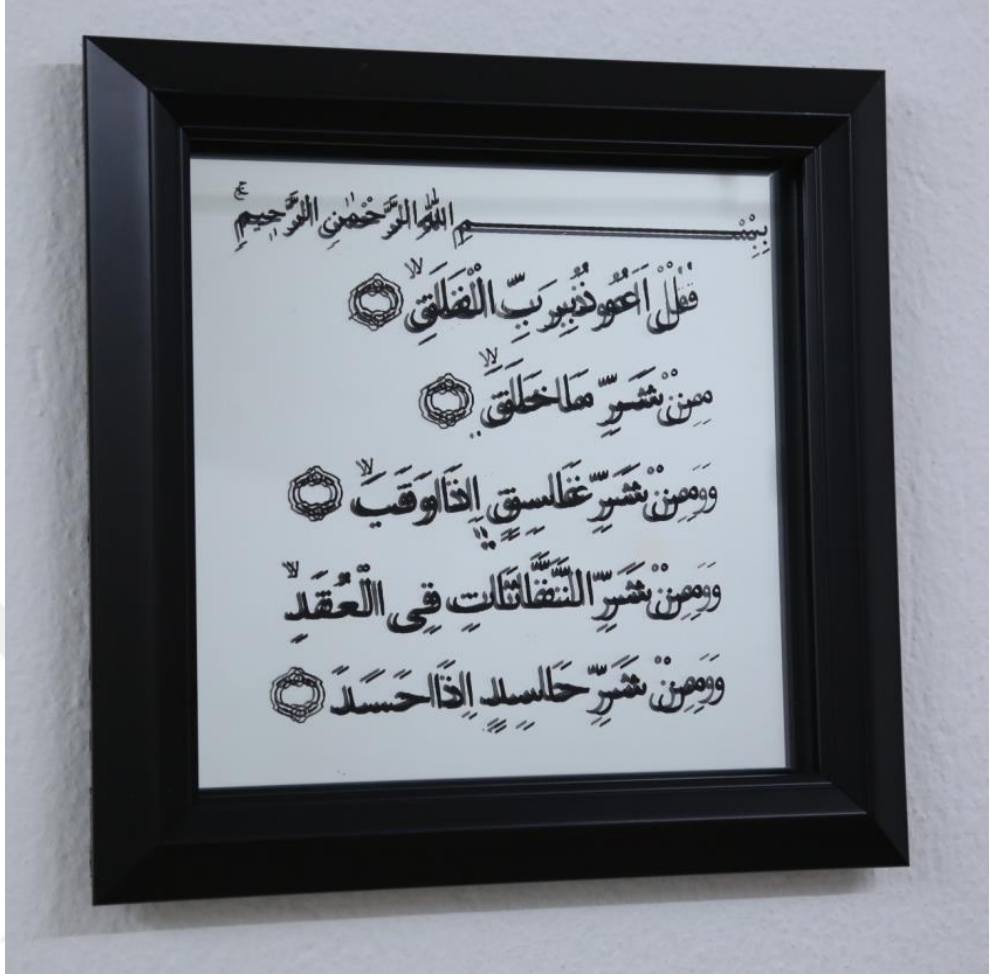 بِسْمِ اللّٰهِ الرَّحْمٰنِ الرَّحِيْمِ
قُلْ اَعُوْذُ بِرَبِّ الْفَلَقِۙ
مِنْ شَرِّ مَا خَلَقَۙ
وَمِنْ شَرِّ غَاسِقٍ اِذَا وَقَبَۙ
وَمِنْ شَرِّ النَّفّٰثٰتِ فِى الْعُقَدِۙ
وَمِنْ شَرِّ حَاسِدٍ اِذَا حَسَدَ